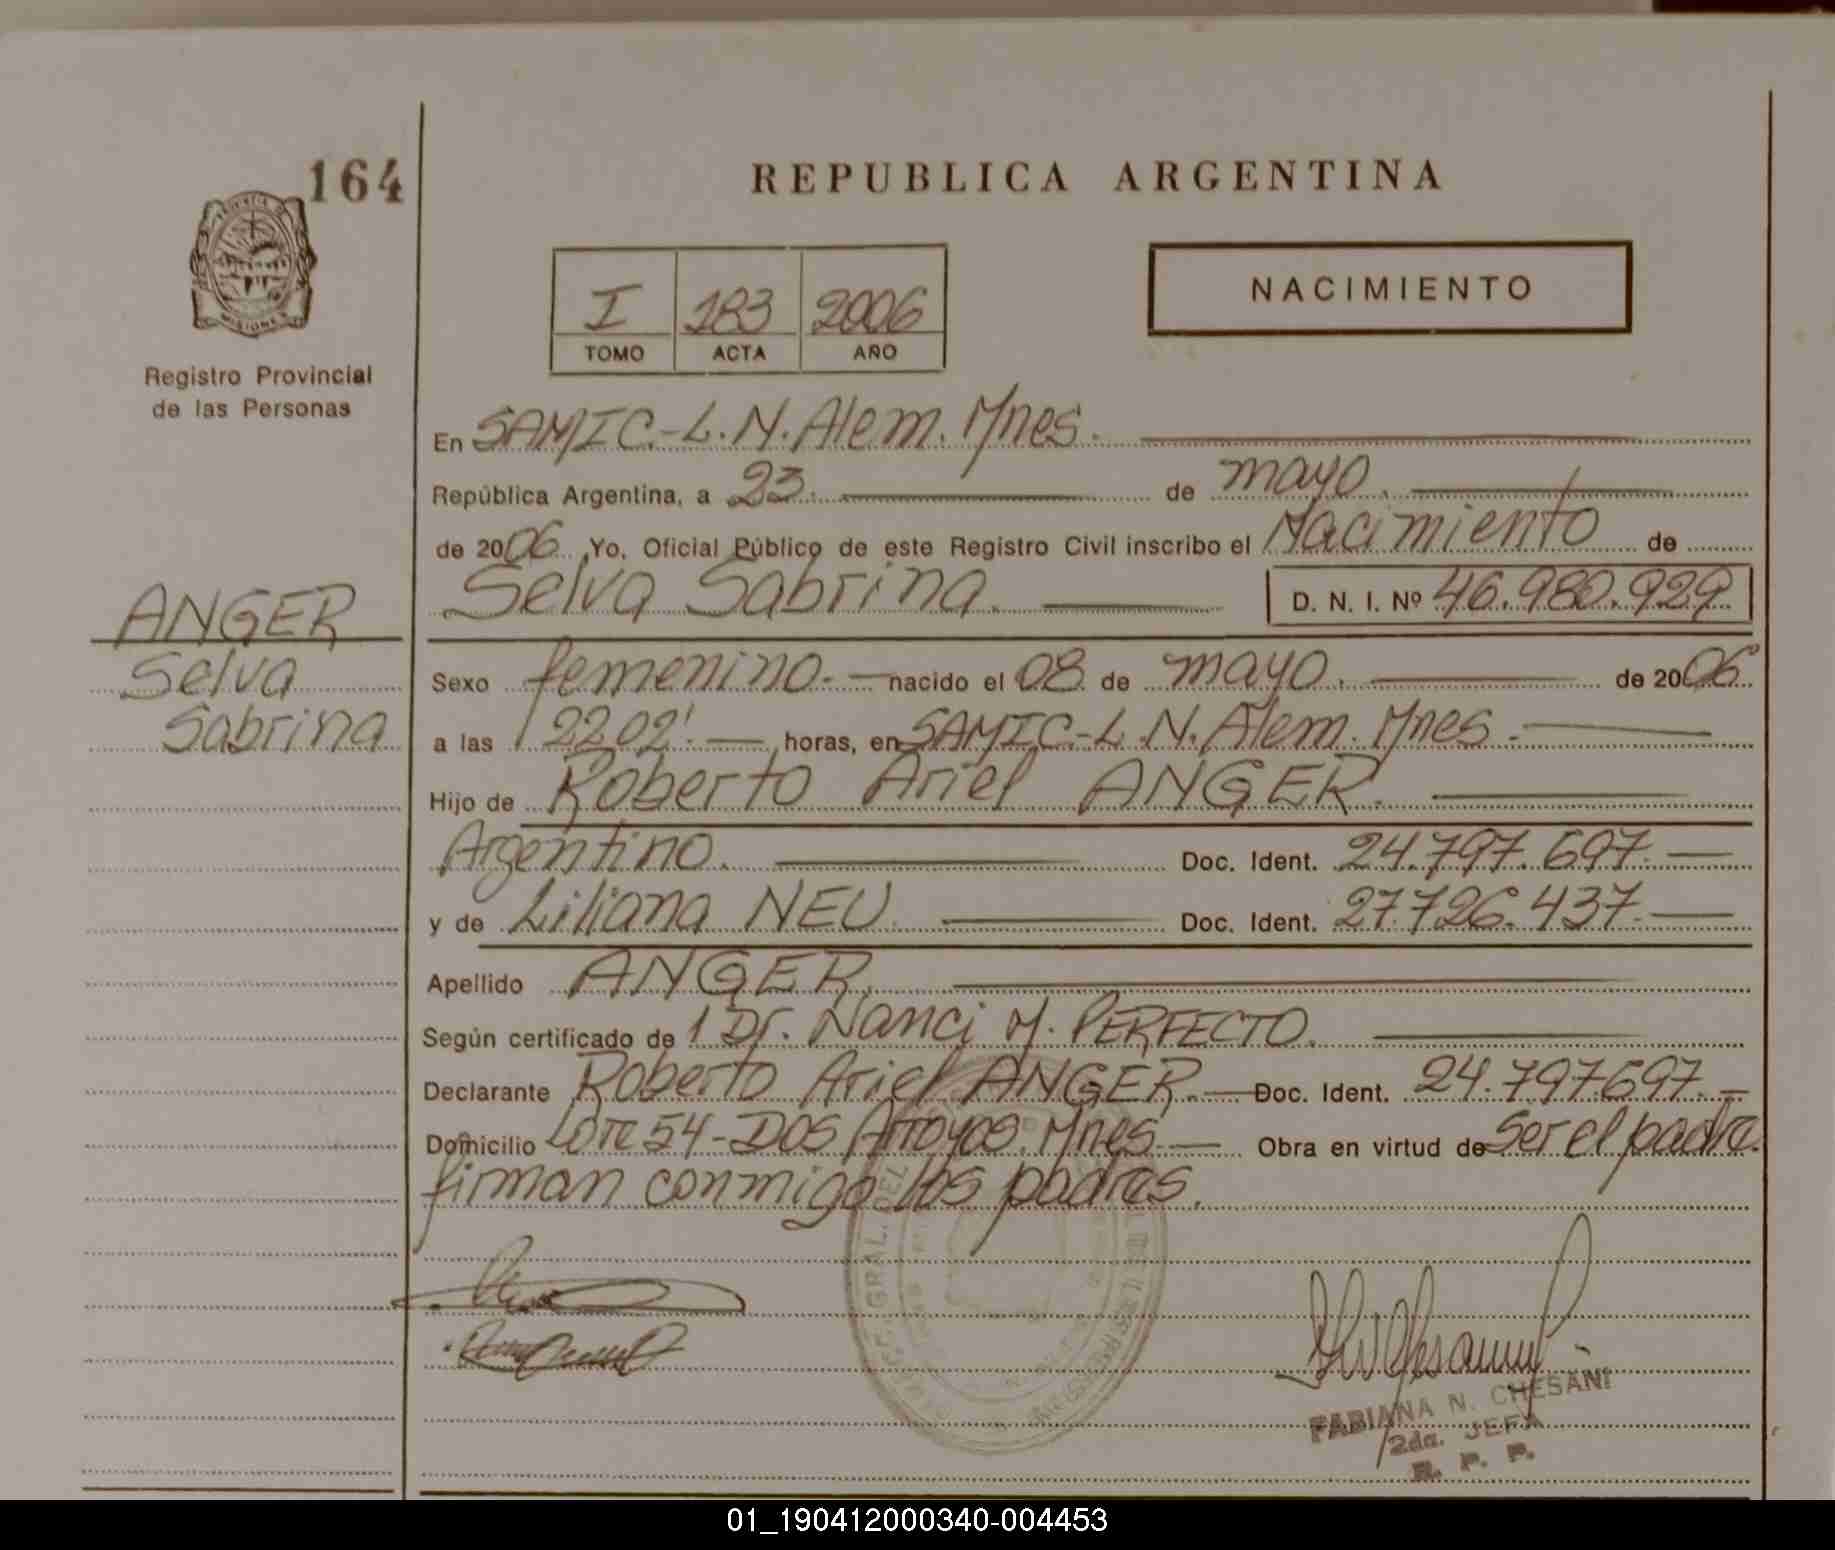 164
REPUBLICA ARGENTINA
NACIMIENTO
I 183 2006
TOMO ACTA AÑO
MISIONES
Registro Provincial
de las Personas
En SAMIC.-L.N.Alem.Mnes.
República Argentina, a 23. de mayo.
de 2006. Yo, Oficial Público de este Registro Civil inscribo el Nacimiento de
Selva Sabrina. D. N. I. Nº 46.980.929.
ANGER
Selva
Sabrina
Sexo femenino.- nacido el 08 de mayo. de 2006.
a las 22 02'. horas, en SAMIC.-L.N.Alem.Mnes.
Hijo de Roberto Ariel ANGER.
Argentino. Doc. Ident. 24.797.697.
y de Liliana NEU. Doc. Ident. 27.726.437.
Apellido ANGER.
Según certificado de 1 Dr. Nanci M. PERFECTO.
Declarante Roberto Ariel ANGER.- Doc. Ident. 24.797.697.
Domicilio Lote 54-Dos Arroyos.Mnes. Obra en virtud de Ser el padre.
firman conmigo los padres.
FABIANA N. CHESANI
2da. JEFA
R. P. P.
01_190412000340-004453